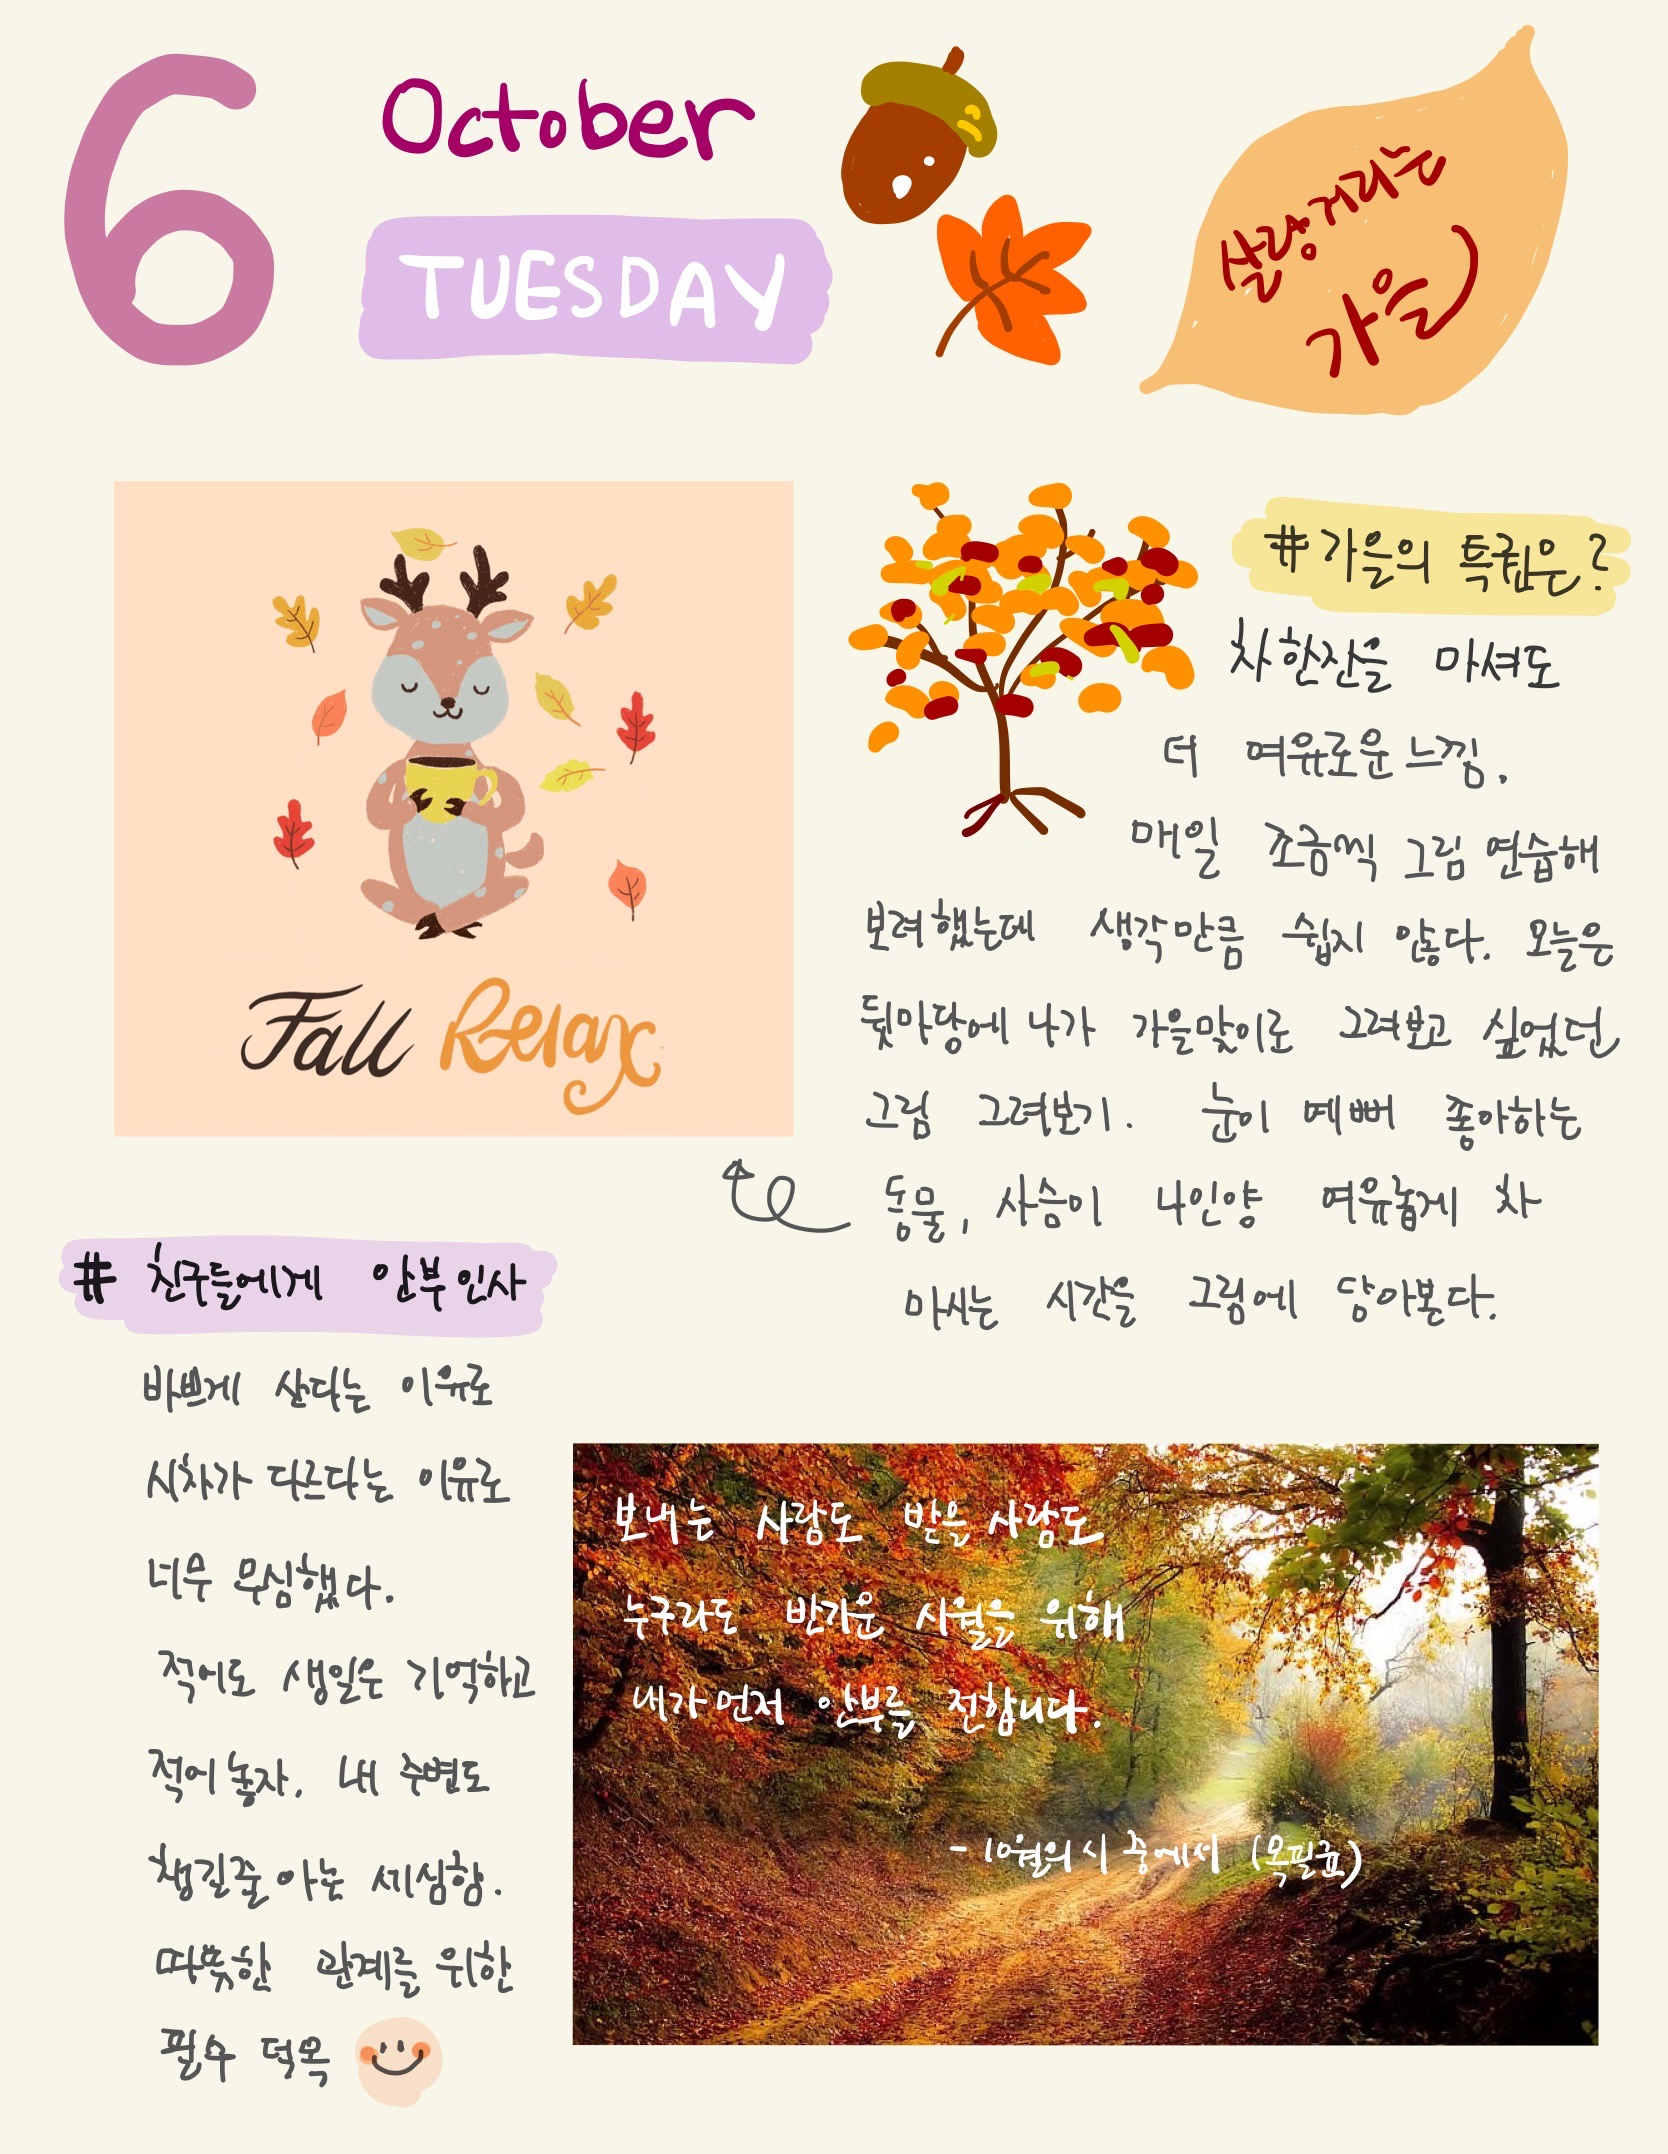 6
October
TUESDAY
살랑거리는
가을
Fall Relax
#가을의 특권은?
차한잔을 마셔도
더 여유로운 느낌.
매일 조금씩 그림 연습해
보려했는데 생각만큼 쉽지 않다. 오늘은
뒷마당에 나가 가을맞이로 그려보고 싶었던
그림 그려보기. 눈이 예뻐 좋아하는
동물, 사슴이 나인양 여유롭게 차
마시는 시간을 그림에 담아본다.
# 친구들에게 안부인사
바쁘게 산다는 이유로
시차가 다르다는 이유로
너무 무심했다.
적어도 생일은 기억하고
적어놓자. 내 주변도
챙길줄 아는 세심함.
따뜻한 관계를 위한
필수 덕목
보내는 사람도 받을 사람도
누구라도 반가운 시월을 위해
내가 먼저 안부를 전합니다.
- 10월의 시 중에서 (목필균)